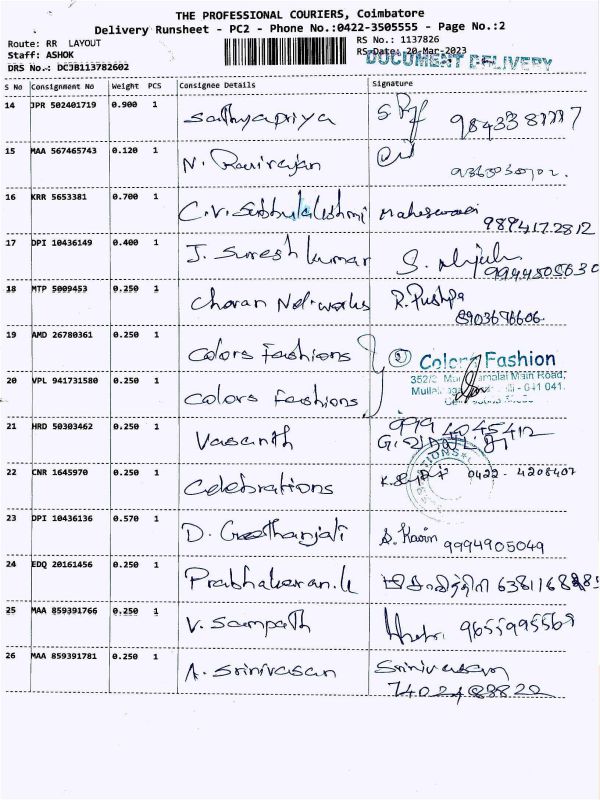 THE PROFESSIONAL COURIERS, Coimbatore
Delivery Runsheet - PC2 - Phone No.:0422-3505555 - Page No.:2
Route: RR LAYOUT RS No.: 1137826
Staff: ASHOK RS Date: 20-Mar-2023
DRS No.: DCJB113782602 DOCUMENT DELIVERY
S No Consignment No Weight PCS Consignee Details Signature
14 JPR 502401719 0.900 1 Sathyapriya
15 MAA 567465743 0.120 1 N. Ravirajan
16 KRR 5653381 0.700 1 C.V. Subbulakshmi Maheswari
9894172812
17 DPI 10436149 0.400 1 J. Suresh kumar
9944505630
18 MTP 5009453 0.250 1 Charan Net-works R. Pushpa
8903676606
19 AMD 26780361 0.250 1 Colors Fashions Colors Fashion
352/2 Main Road,
20 VPL 941731580 0.250 1 Colors Fashions - 641 041.
21 HRD 50303462 0.250 1 Vasanth 9994045412
22 CNR 1645970 0.250 1 Celebrations 0422-4208407
23 DPI 10436136 0.570 1 D. Geethanjali S. Kavin 9994905049
24 EDQ 20161456 0.250 1 Prabhakaran.k
25 MAA 859391766 0.250 1 V. Sampath 9655995569
26 MAA 859391781 0.250 1 A. Srinivasan Srinivasan